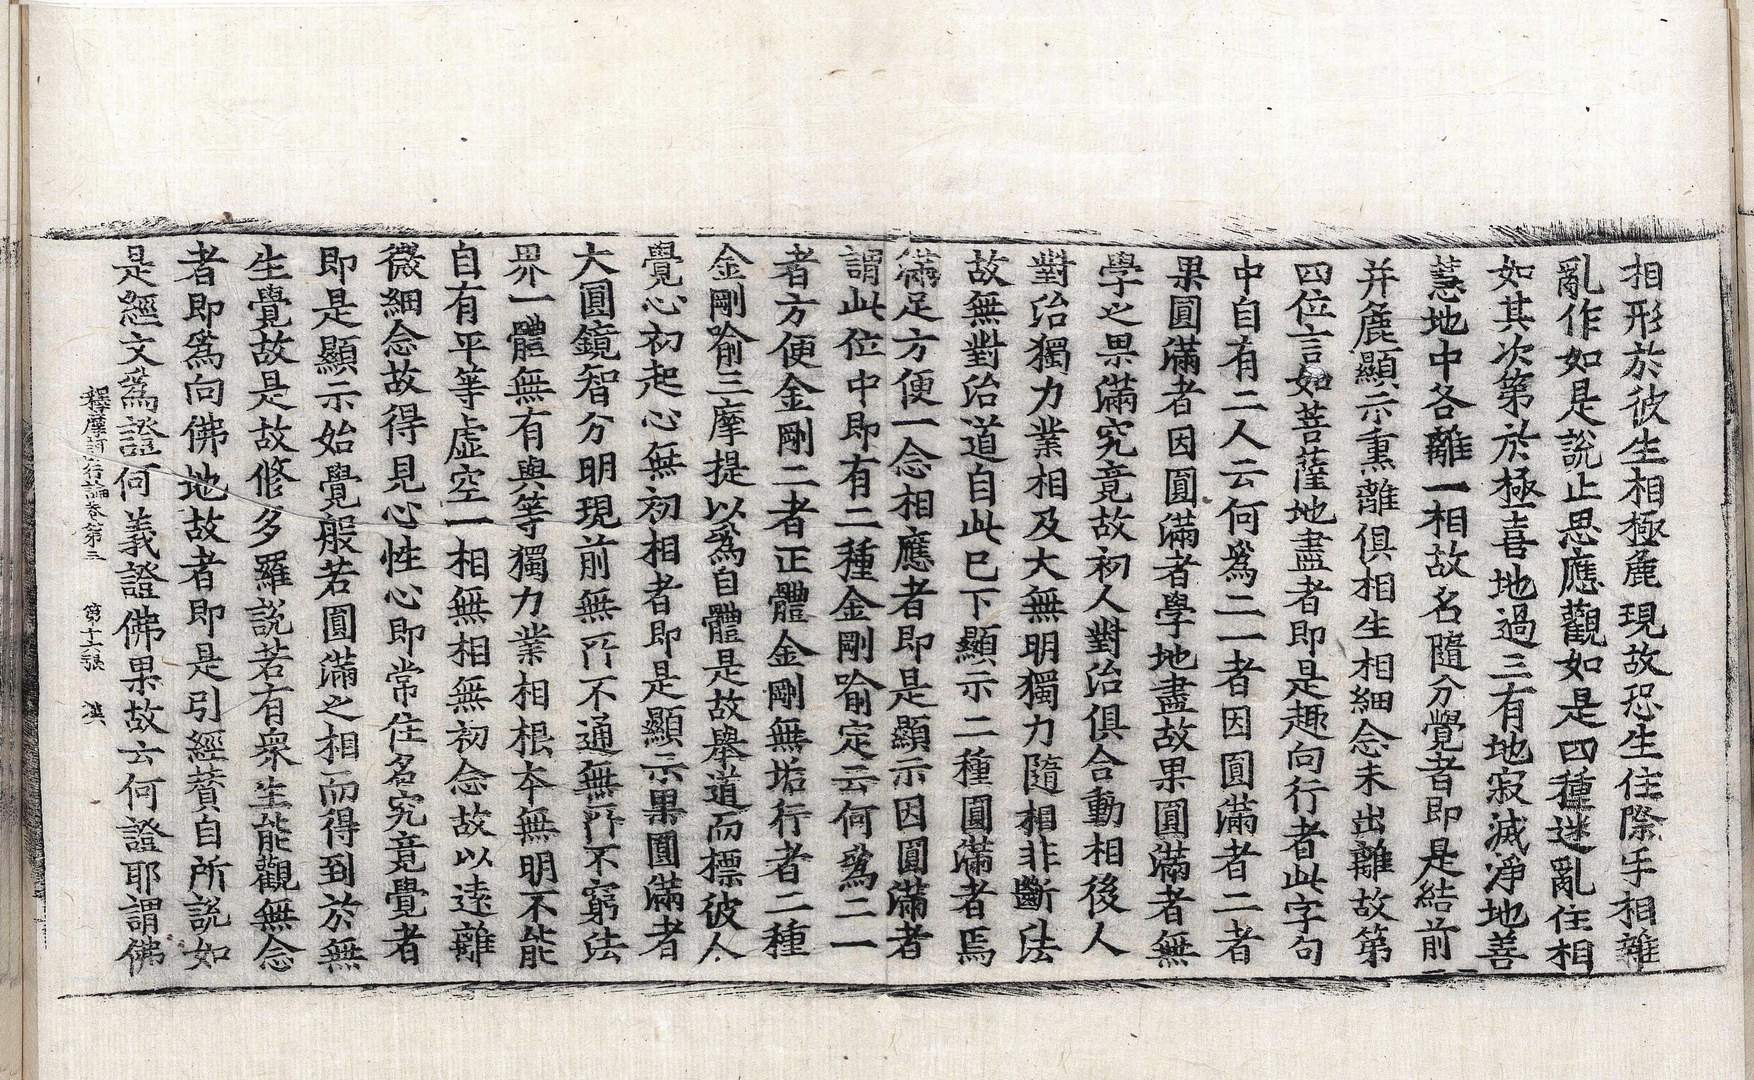 相形於彼生相極麁現故恐生住際手相雜
亂作如是說止思應觀如是四種迷亂住相
如其次第於極喜地過三有地寂滅淨地善
慧地中各離一相故名隨分覺者即是結前二
并麁顯示熏離俱相生相細念未出離故第
四位言如菩薩地盡者即是趣向行者此字句
中自有二人云何爲二一者因圓滿者二者
果圓滿者因圓滿者學地盡故果圓滿者無
學之果滿究竟故初人對治俱合動相後人
對治獨力業相及大無明獨力隨相非斷法
故無對治道自此已下顯示二種圓滿者焉
滿足方便一念相應者即是顯示因圓滿者
謂此位中即有二種金剛喻定云何爲二一
者方便金剛二者正體金剛無垢行者二種
金剛喻三摩提以爲自體是故舉道而標彼人
覺心初起心無初相者即是顯示果圓滿者
大圓鏡智分明現前無所不通無所不窮法
界一體無有與等獨力業相根本無明不能
自有平等虛空一相無相無初念故以遠離
微細念故得見心性心即常住名究竟覺者
即是顯示始覺般若圓滿之相而得到於無
生覺故是故修多羅說若有衆生能觀無念
者即爲向佛地故者即是引經賛自所說如
是經文爲證何義證佛果故云何證耶謂佛
釋摩訶衍論卷第三 第十六張 漠